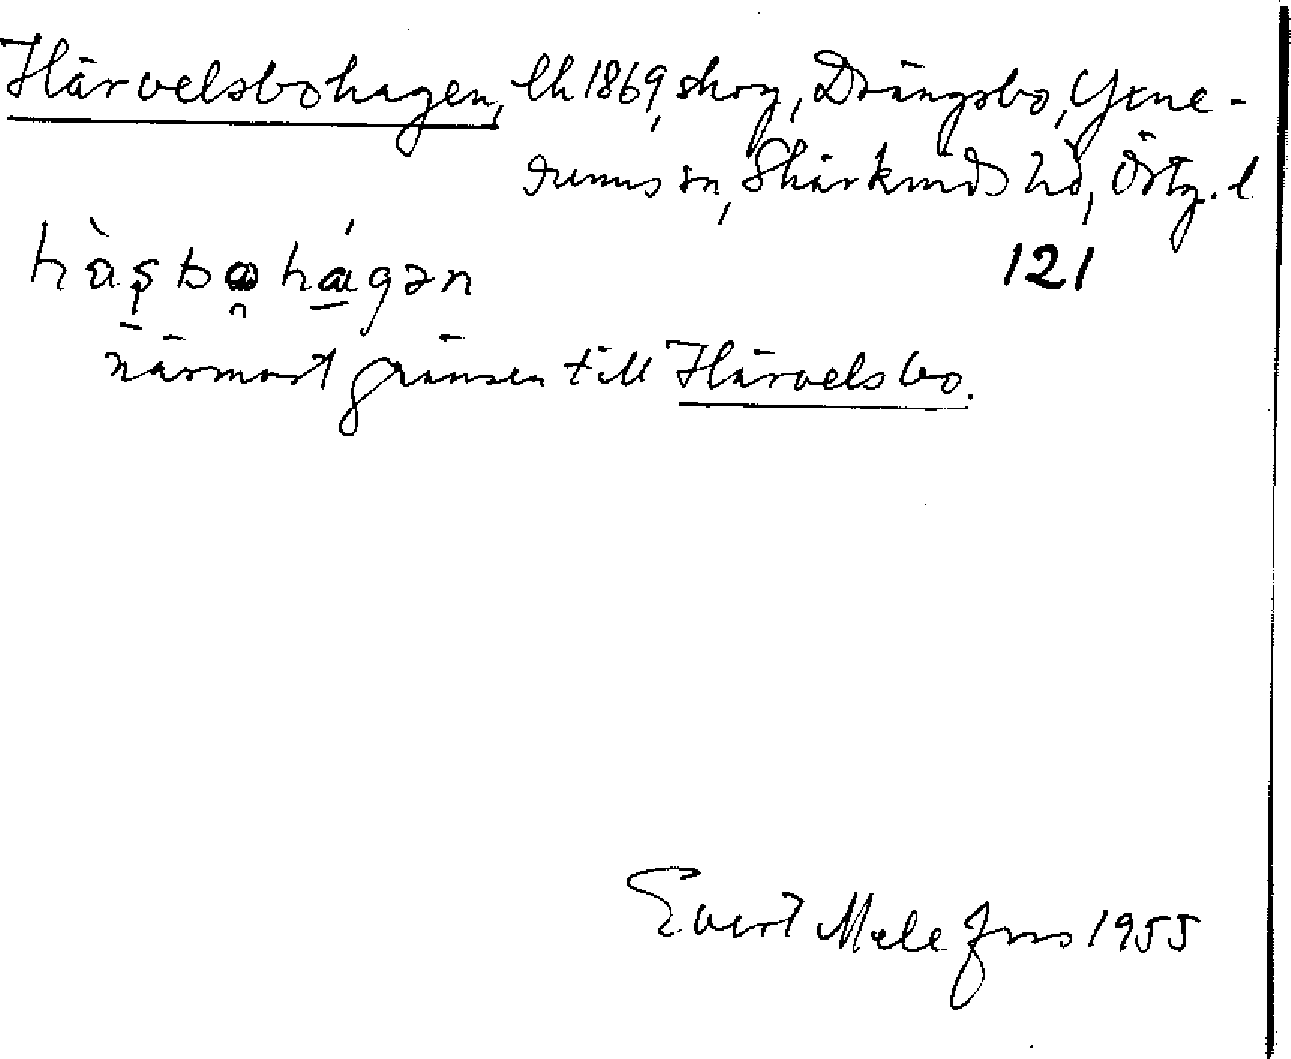 Härvelsbohagen, lh 1869, skog, Drängsbo, Gåre-
rums sn, Skärkinds hd, Östg. l
121
närmast gränsen till Härvelsbo.
Evert Melefors 1955